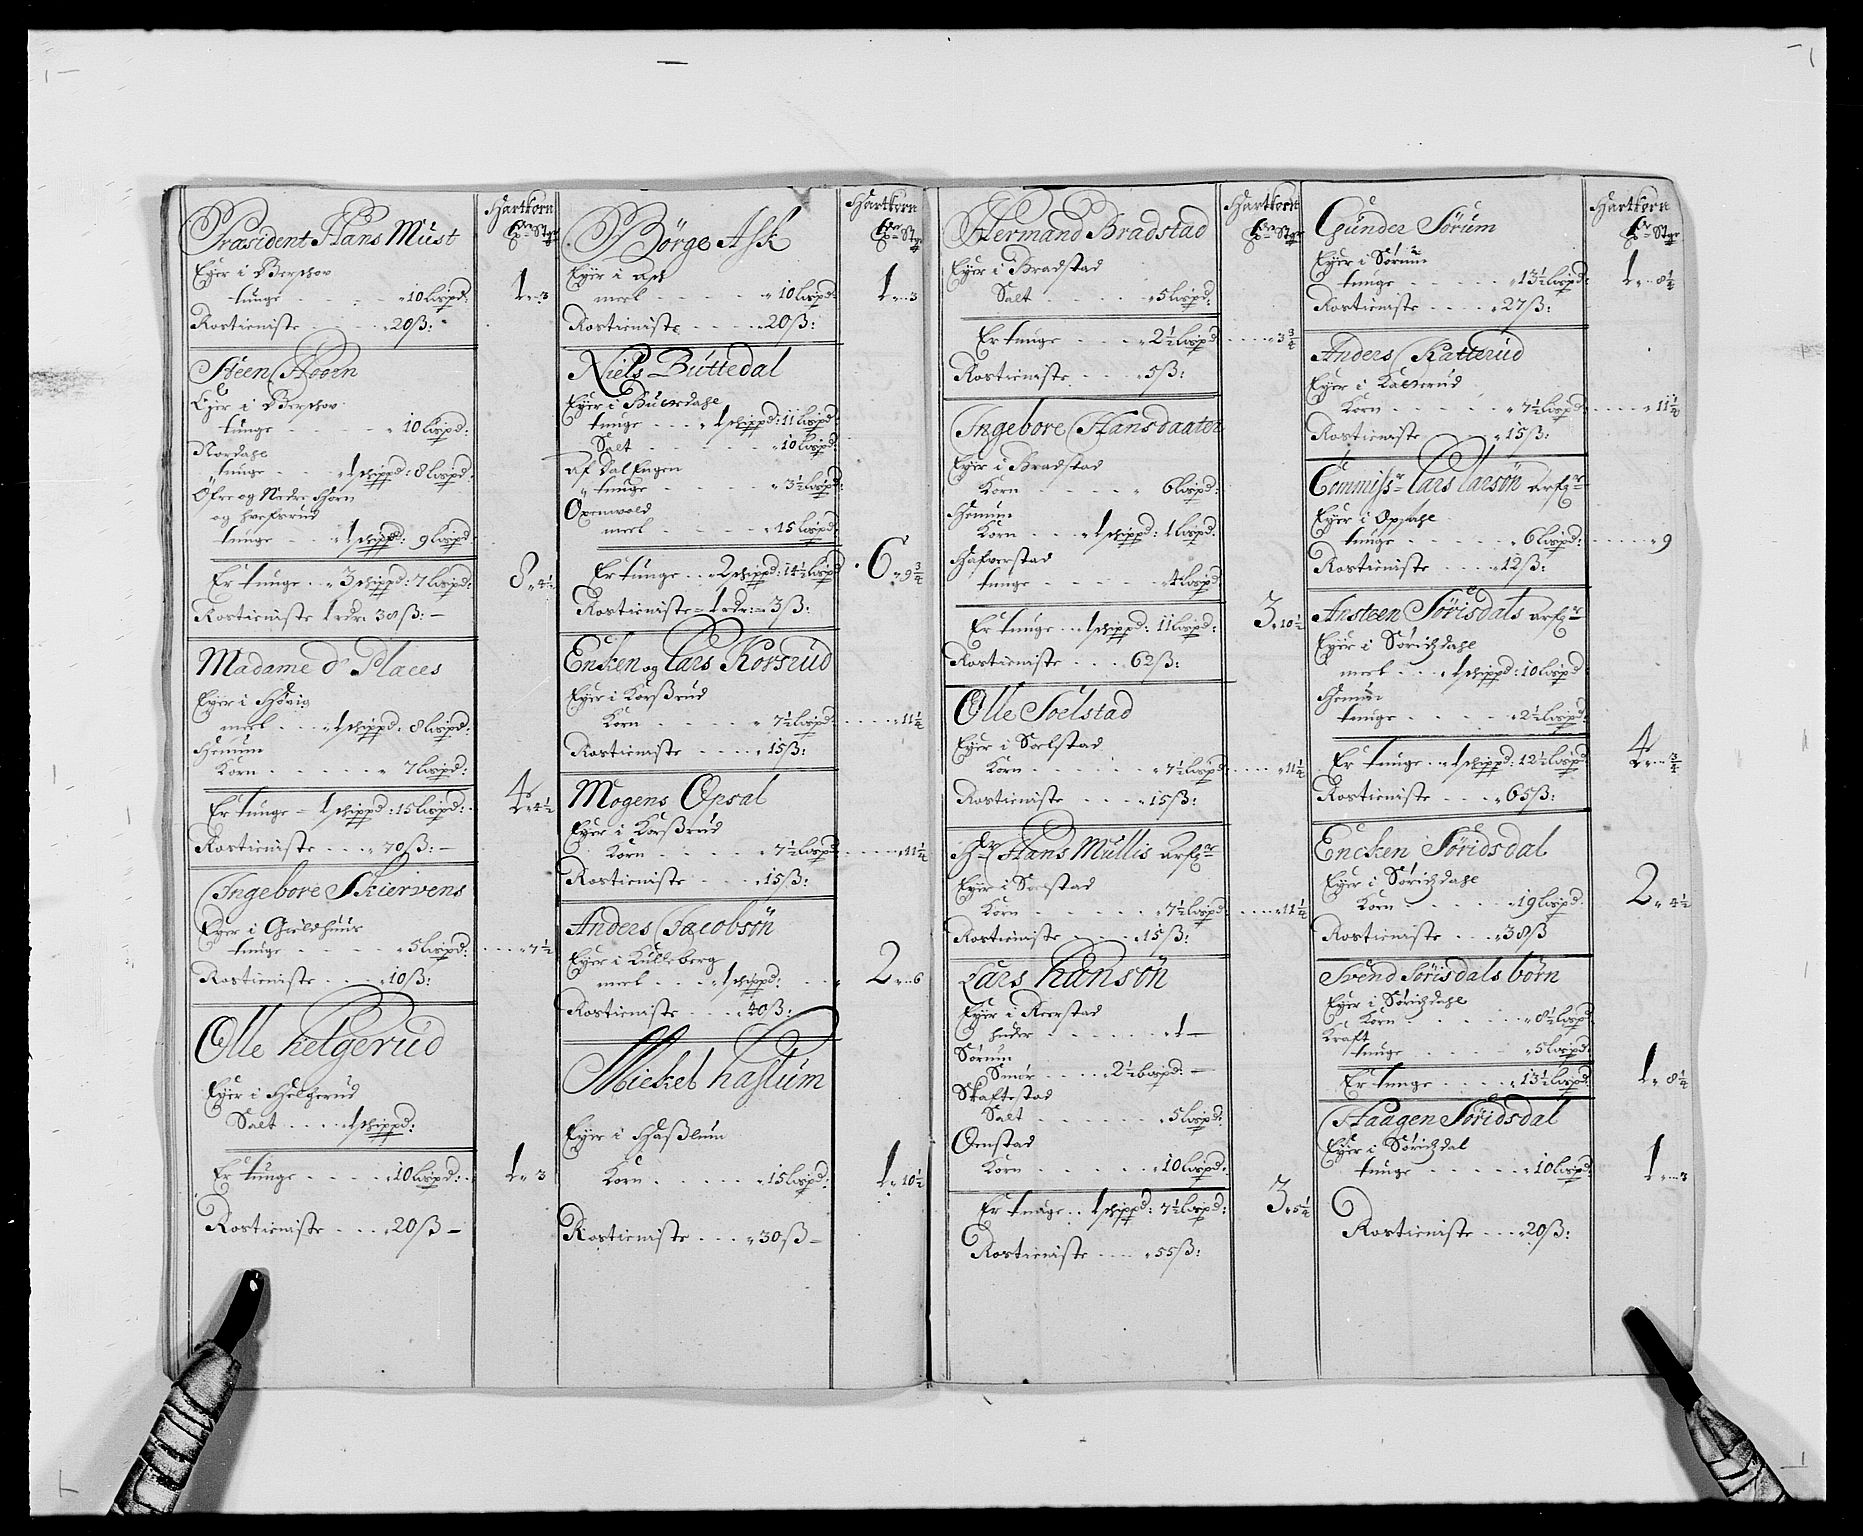 Hartkorn
Præsident Hans Must
Eyer i Berschov
tunge - - - - „10 lispd: 1 „ 3
Rostieniste - - - „20 ß:
Steen Hoorn
Eyer i Berschov
tunge - - - - „10 lispd:
Nordahl
tunge - - „1 schippd: 8 lispd:
Öfre og Nedre Horn
og
tunge - - „1 schippd: 9 lispd:
Er tunge „3 schippd: 7 lispd: 8 „ 4½
Rostieniste 1 rdr: 38 ß: —
Madame d' Places
Eyer i Høvig
meel - - „1 schippd: 8 lispd:
Hemum
Korn - - - - „7 lispd:
Er tunge - 1 schippd: 15 lispd: 4 „ 4½
Rostieniste - - - „70 ß: —
Ingebore Skiervens
Eyer i Gieldhuus
tunge - - - - „5 lispd: - - - „7½
Rostieniste - - - „10 ß:
Olle Helgerud
Eyer i Helgerud
Salt - - - „1 schippd:
Er tunge - - - - „10 lispd: 1 „ 3
Rostieniste - - - „20 ß —
Hartkorn
Børge Ask
Eyer i Ask
meel - - - - „10 lispd: 1 „ 3
Rostieniste - - - „20 ß:
Niels Buttedal
Eyer i Buerdahl
tunge - - „1 schippd: 11 lispd:
Salt - - - - „10 lispd:
af Dal Engen
„ tunge - - - - „3½ lispd:
Oxenvold
meel - - - - „15 lispd:
Er tunge - „2 schippd: 14½ lispd 6 „ 9¾
Rostieniste - 1 rdr: - 3 ß:
Encken og Lars Korsrud
Eyer i Korßrud
Korn - - - - „7½ lispd: - - - „11¼
Rostieniste - - - „15 ß:
Mogens Opsal
Eyer i Korßrud
Korn - - - - „7½ lispd - - - „11¼
Rostieniste - - - „15 ß:
Anders Jacobsøn
Eyer i Kulleberg
meel - - - „1 schippd: - - „ 2 „ 6
Rostieniste - - - „40 ß:
Mickel Haslum
Eyer i Haßlum
Korn - - - - „15 lispd: 1 „ 10½
Rostieniste - - - „30 ß —
Hartkorn
Hermand Bradstad
Eyer i Bradstad
Salt - - - - „5 lispd:
Er tunge - - - „2½ lispd - - - „3¾
Rostieniste - - - „5 ß:
Ingebore Hansdaater
Eyer i Bradstad
Korn - - - - „ 6 lispd:
Hemum
Korn - - - „1 schippd: 1 lispd:
Hafverstad
tunge - - - - „4 lispd
Er tunge - „1 schippd: 11 lispd: 3 „ 10½
Rostieniste - - - 62 ß:
Olle Soelstad
Eyer i Soelstad
Korn - - - - „7½ lispd: - - - „11¼
Rostieniste - - - „15 ß:
Hr Hans Mullis arfger
Eyer i Soelstad
Korn - - - - „7½ lispd: - - - „11¼
Rostieniste - - - „15 ß:
Lars Hansøn
Eyer i Reerstad
huder - - - - „1 —
Sørum
Smør - - - „2½ bispd: —
Skaftestad
Salt - - - - „5 lispd:
Oenstad
Korn - - - - „10 lispd:
Er tunge - - 1 schippd: 7½ lispd: 3 „ 5¼
Rostieniste - - - „55 ß:
Hartkorn
Gunder Sørum
Eyer i Sørum
tunge - - - - „13½ lispd: 1 „ 8¼
Rostieniste - - - „27 ß:
Anders Katterud
Eyer i Katterud
Korn - - - - „7½ lispd: - - - „11¼
Rostieniste - - - „15 ß:
Commissr Lars Larsøn arfger
Eyer i Opsahl
tunge - - - - „6 lispd: - - - „9
Rostieniste - - - „12 ß:
Ansteen Sørisdals arfger
Eyer i Sørichdahl
meel - - „1 schippd: 10 lispd:
Hemum
tunge - - - - „2½ lispd:
Er tunge - „1 schippd: 12½ lispd 4 „ ¾
Rostieniste - - - „65 ß:
Encken Søridsdal
Eyer i Sørichdahl
Korn - - - - „19 lispd: 2 „ 4½
Rostieniste - - - „38 ß
Svend Sørisdals børn
Eyer i Sørichdahl
Korn - - - - „8½ lispd
Kraft
tunge - - - - „5 lispd:
Er tunge - - - „13½ lispd: 1 „ 8¼
Haagen Søridsdal
Eyer i Sørichdal
tunge - - - - „10 lispd: 1 „ 3
Rostieniste - - - „20 ß: